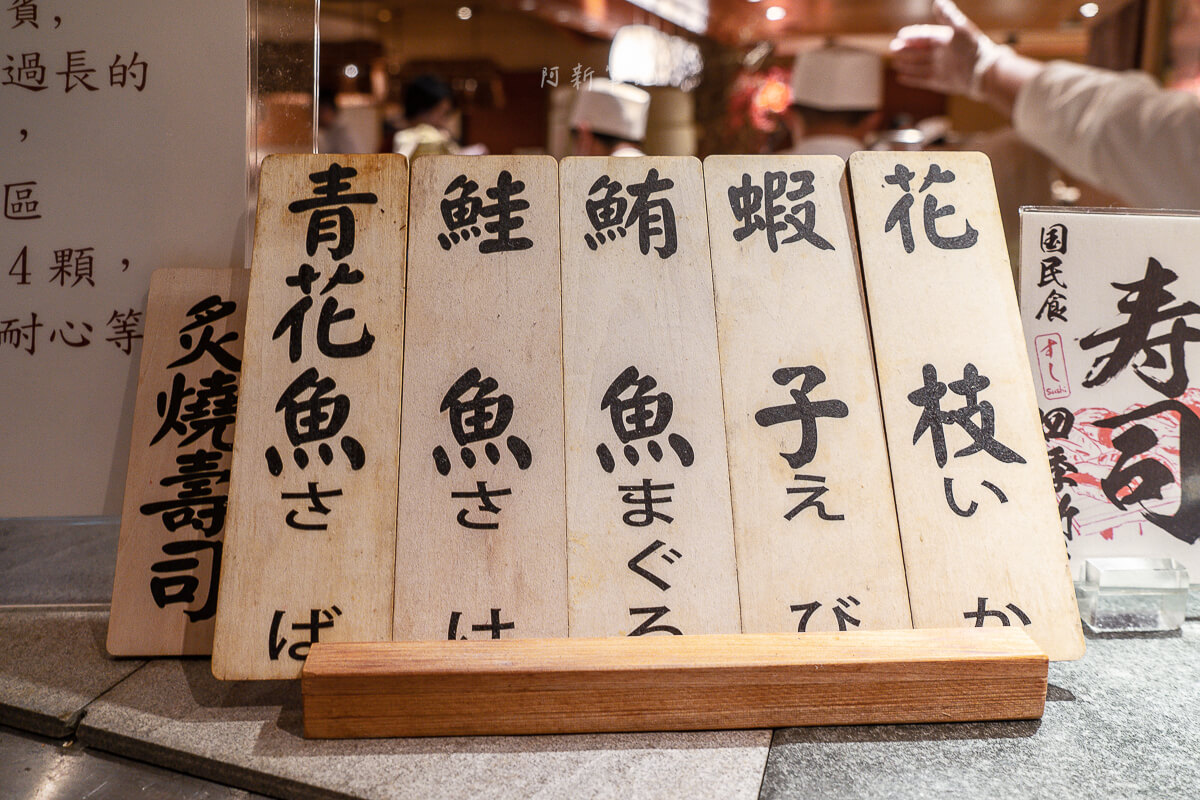 賓,
過長的
,
區
4顆,
耐心等
阿新
炙燒壽司
青花魚さば
鮭魚さけ
鮪魚まぐろ
蝦子えび
花枝いか
国民食
すし
Sushi
四季
寿司